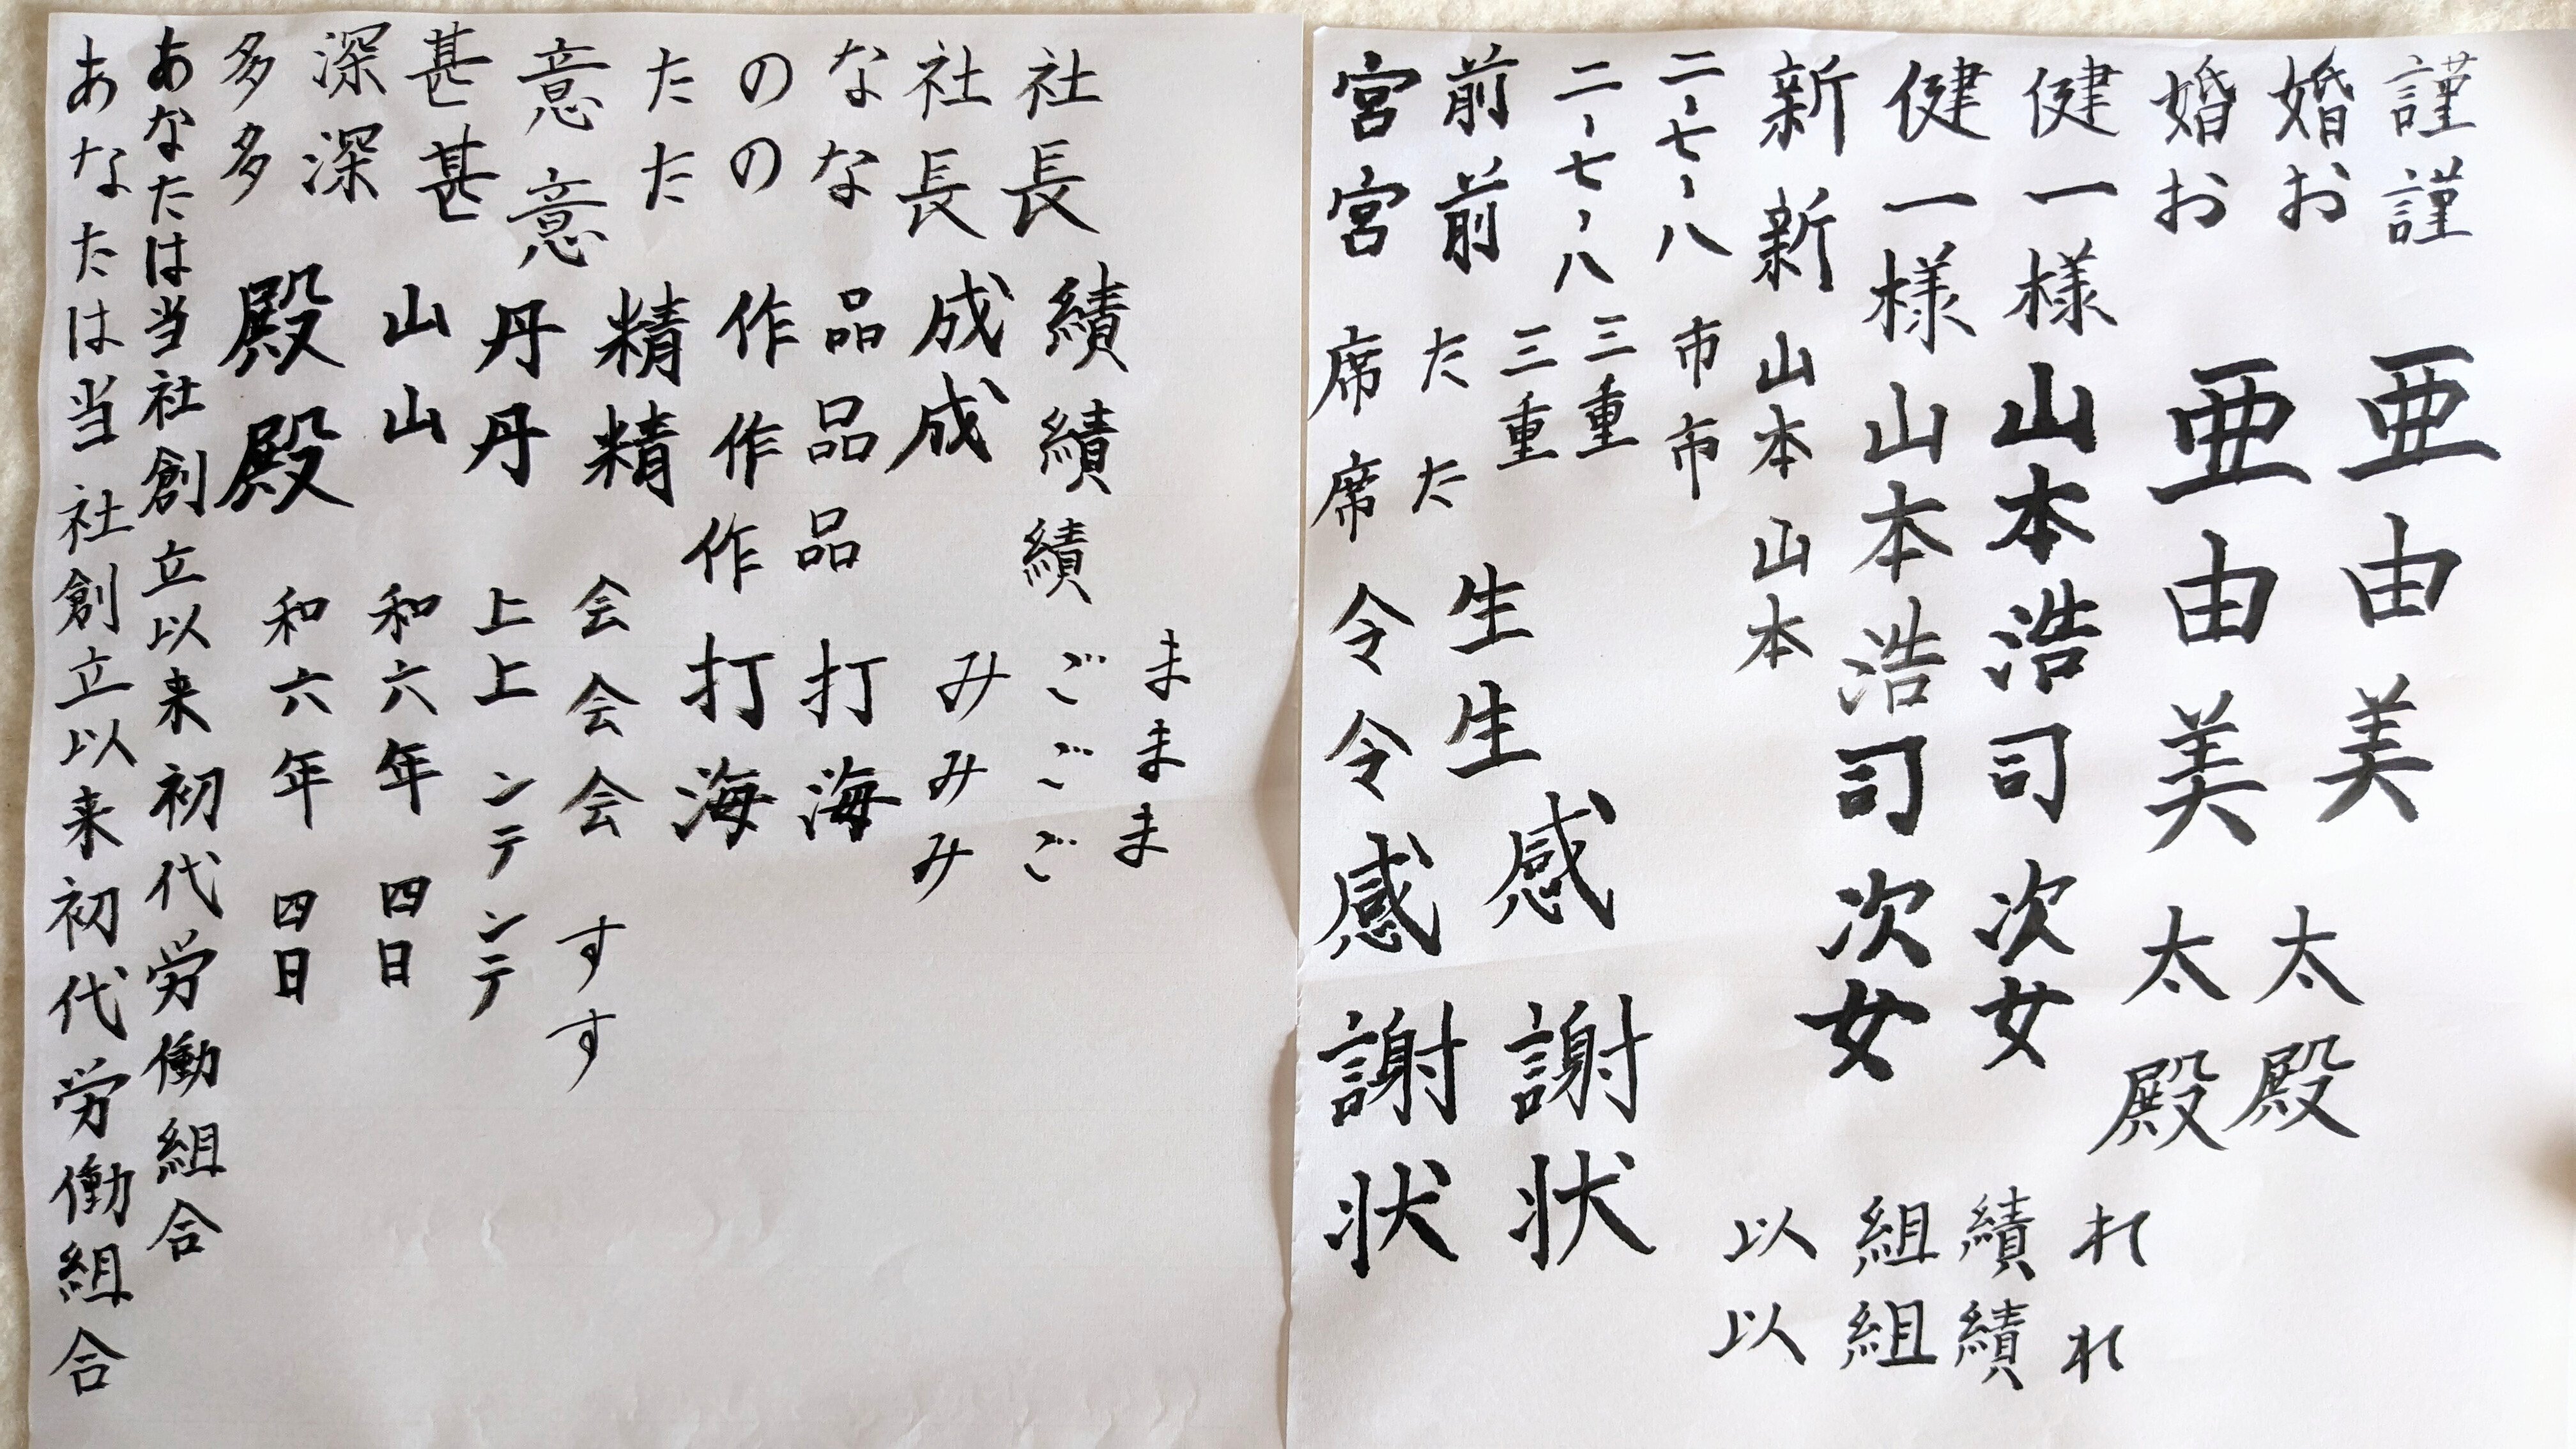 謹謹
婚お
婚お
亜由美
亜由美
太殿
太殿
れれ
健一様
健一様
山本浩司次女
山本浩司次女
績績
組組
以以
新新
山本山本
二、七、八
二、七、八
市市
三重
三重
前前
宮宮
たた
席席
生生
令令
感謝状
感謝状
社長
社長
なな
のの
たた
意意
甚甚
深深
多多
績績績
成成
品品品
作作作
精精
丹丹
山山
殿殿
ままま
ごごご
みみみ
打海
打海
会会会
すす
上上
ンテンテ
和六年四日
和六年四日
あなたは当社創立以来初代労働組合
あなたは当社創立以来初代労働組合